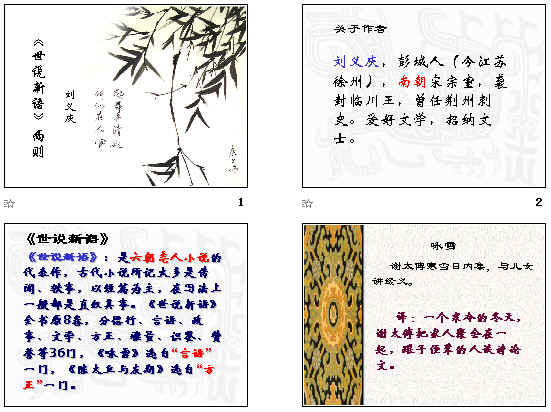 《世说新语》两则
刘义庆
1
关于作者
刘义庆，彭城人（今江苏
徐州），南朝宋宗室，袭
封临川王，曾任荆州刺
史。爱好文学，招纳文
士。
2
《世说新语》
《世说新语》：是六朝志人小说的
代表作，古代小说所记大多是传
闻、轶事，以短篇为主，在写法上
一般都是直叙其事。《世说新语》
全书原8卷，分德行、言语、政
事、文学、方正、雅量、识鉴、赞
誉等36门，《咏雪》选自“言语”
一门，《陈太丘与友期》选自“方
正”一门。
咏雪
谢太傅寒雪日内集，与儿女
讲论文义。
译：一个寒冷的冬天，
谢太傅把家人聚会在一
起，跟子侄辈的人谈诗论
文。